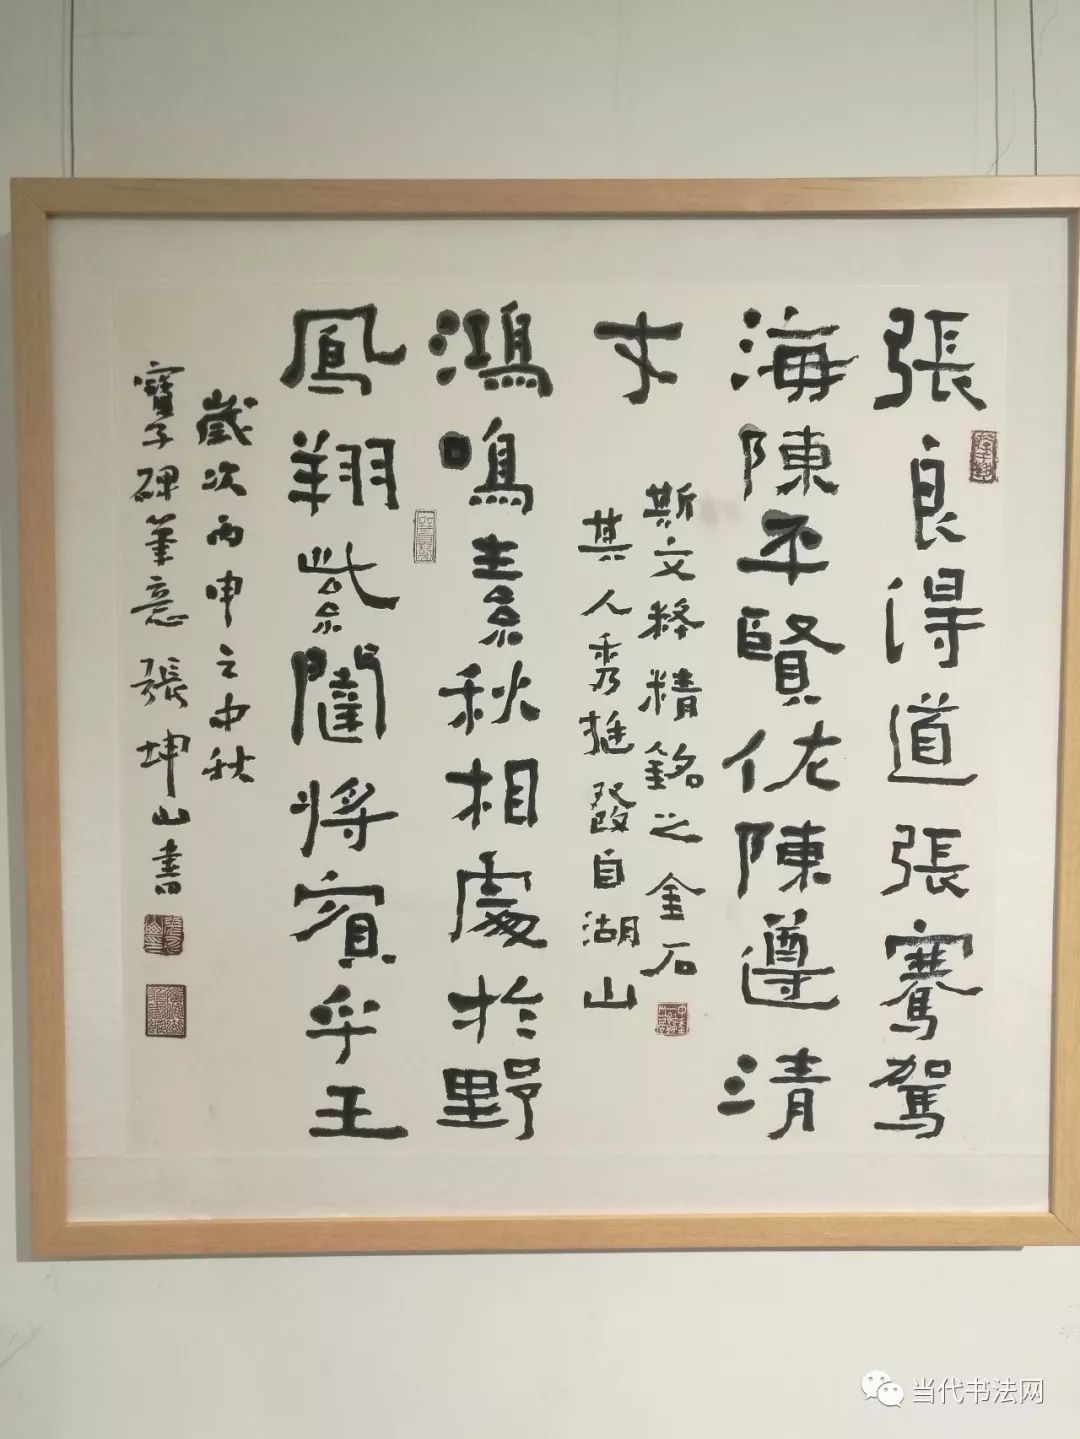 張良得道張騫駕
海陳平賢佐陳遵清
才
斯文粹精銘之金石
其人秀挺發自湖山
鴻鳴素秋相處於野
鳳翔紫闥將賓乎王
歲次丙申之中秋
寶子碑筆意張坤山書
当代书法网